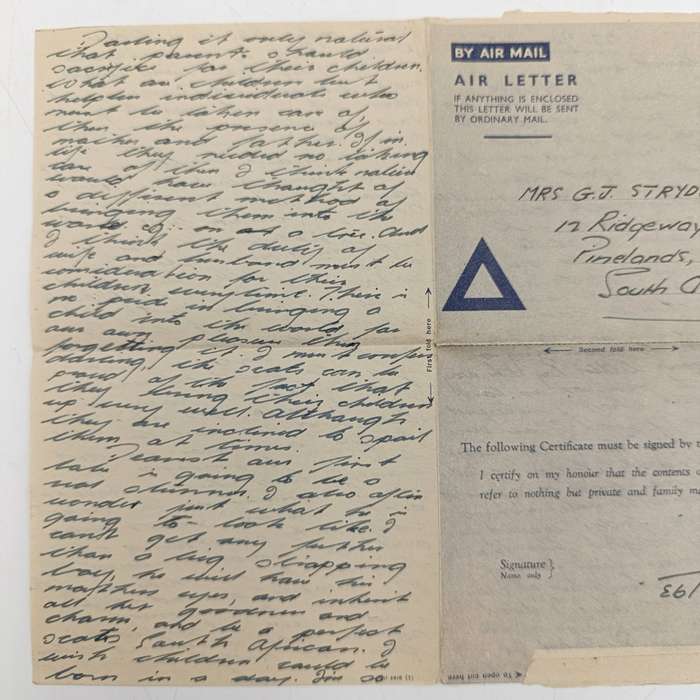 Darling it only natural
that parents should
sacrifice for their children.
What are children but
helpless individuals who
must be taken care of,
then the presence of
mother and father. If in
life they needed no taking
care of then I think nature
would have thought of
a different method of
bringing them into the
world e.g. on as a tree. And
I think the duty of
wife and husband must be
consideration for their
children everytime. There is
no pride in bringing a
child into the world for
our own pleasure then
forgetting it. I must confess
darling, the Scots can be
proud of the fact that
they bring their children
up very well. Although
they are inclined to spoil
them at times.
Dearest our first
babe is going to be a
real stunner. I also often
wonder just what he is
going to look like. I
can't get any further
than a big strapping
boy, he will have his
mothers eyes, and inherit
all her goodness and
charm, and be a perfect
Scots South African. I
wish children could be
born in a day. I'm so
BY AIR MAIL
AIR LETTER
IF ANYTHING IS ENCLOSED
THIS LETTER WILL BE SENT
BY ORDINARY MAIL.
MRS G.J. STRYD
12 Ridgeway
Pinelands,
South
First fold here
Second fold here
The following Certificate must be signed by
I certify on my honour that the contents
refer to nothing but private and family
Signature
Name only
To open cut here